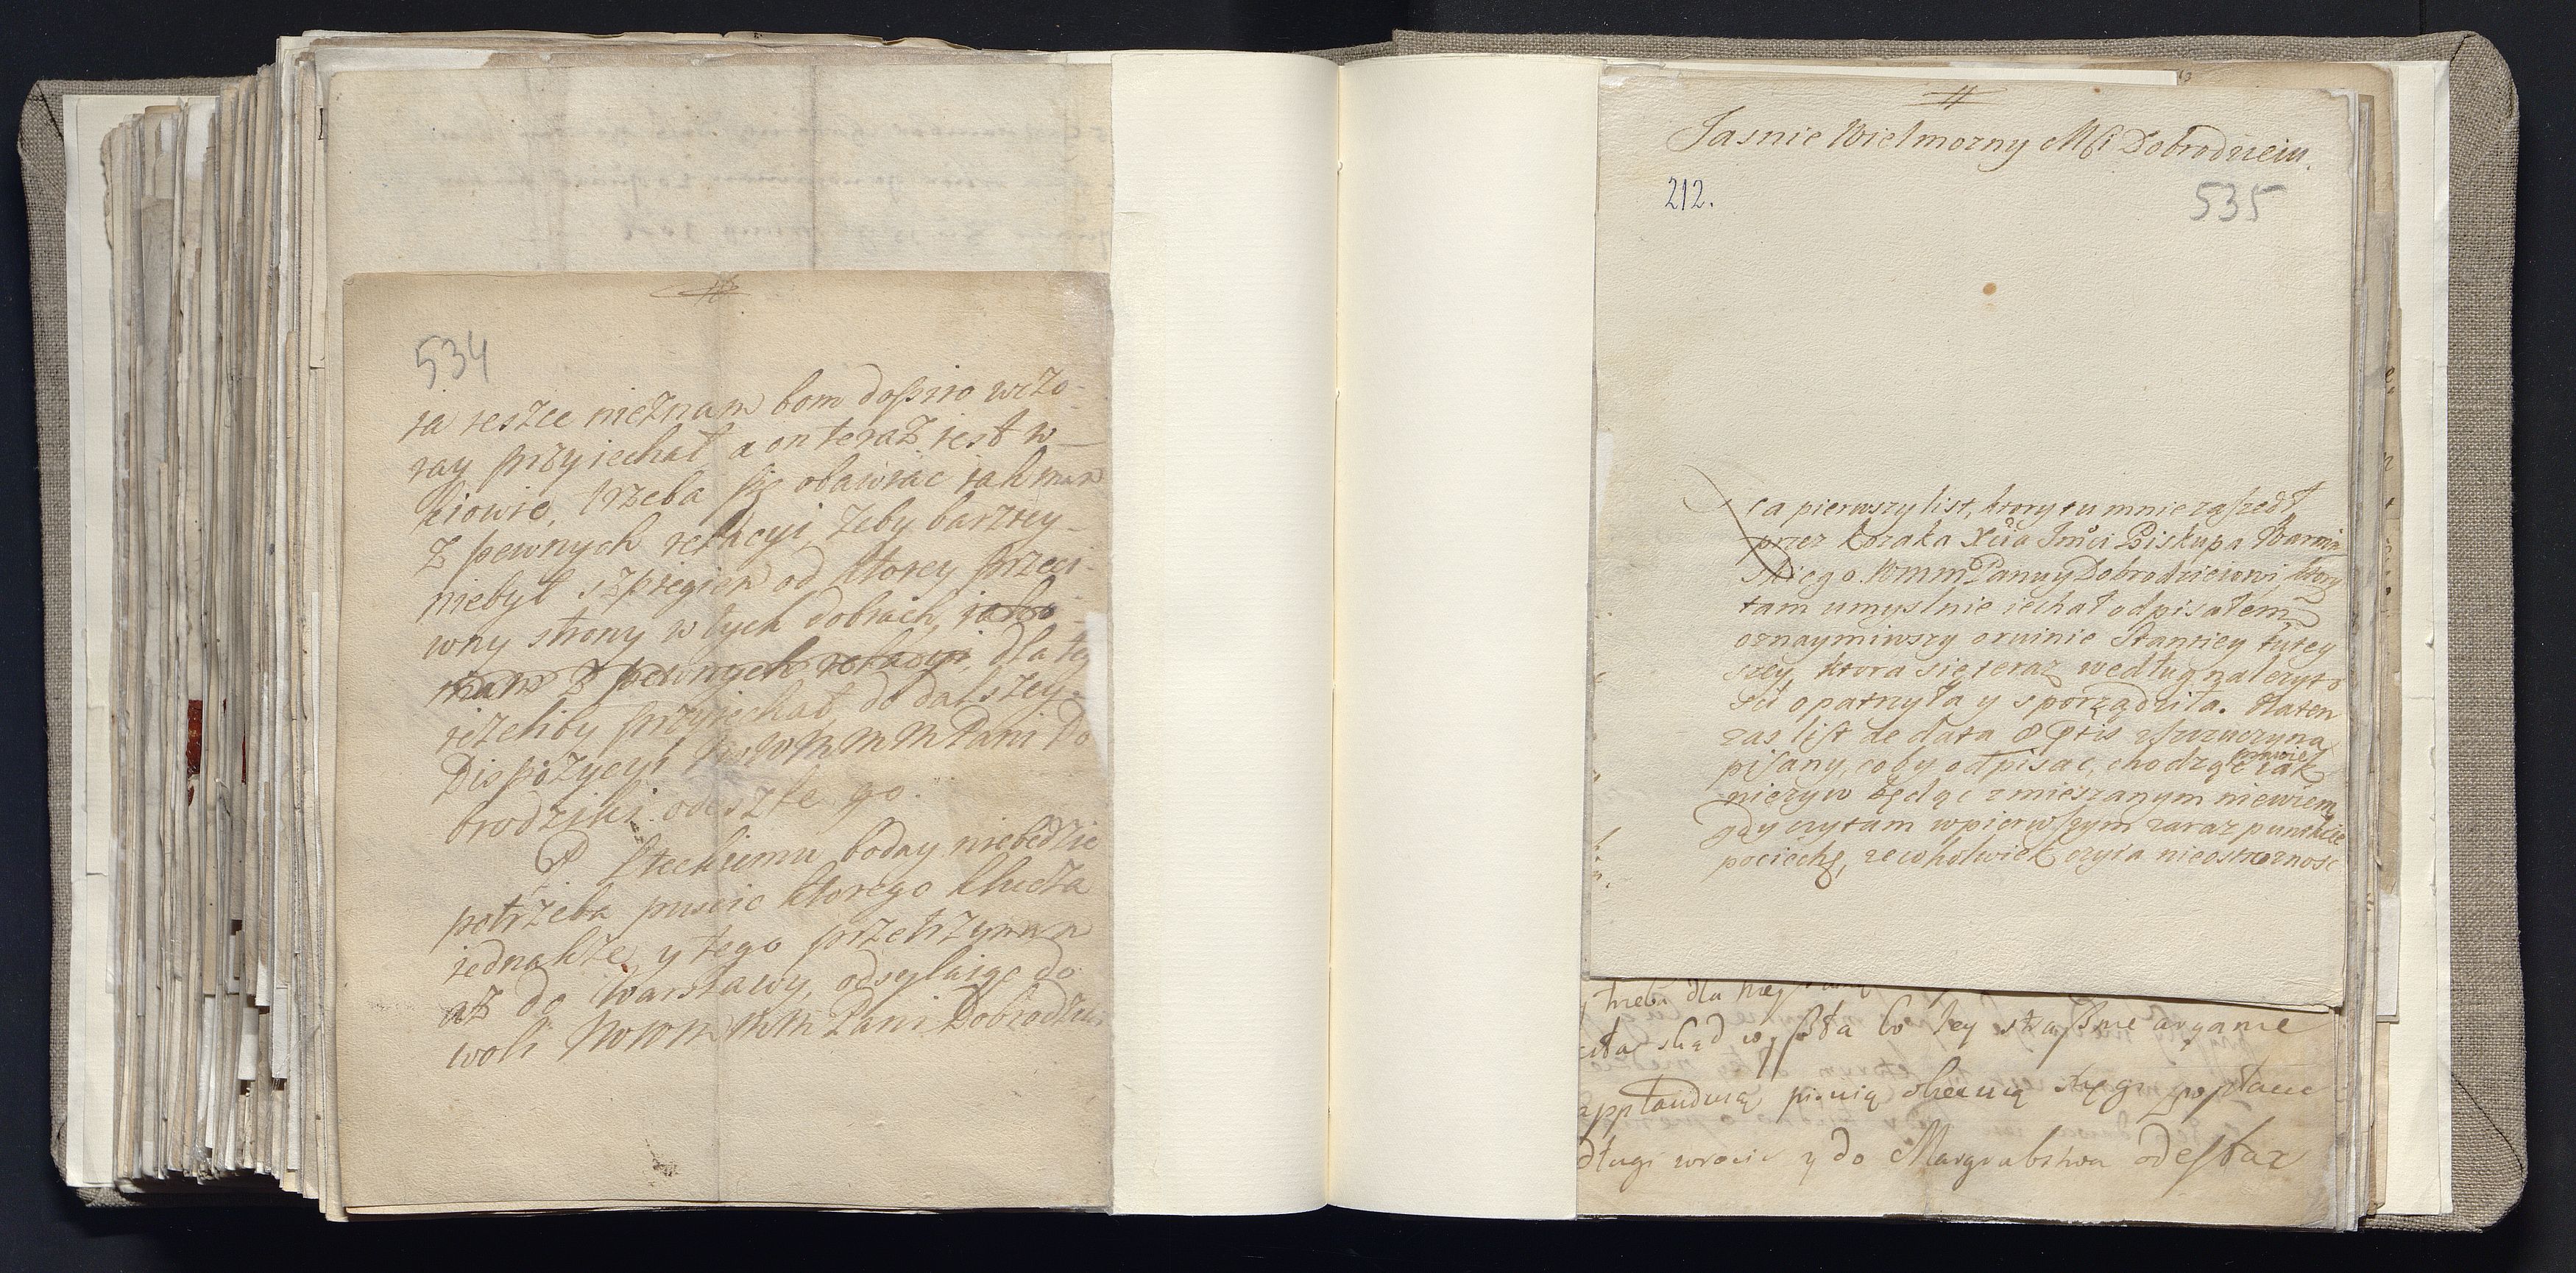 534
ra ieszce nieznam bom dopiro wczo-
ray przyiechał a on teraz iest w
Kiowie, trzeba się obawiac iak mam
z pewnych relacyi, zeby barziey
niebył szpiegiem od ktorey przeci-
wny strony w tych dobrach, iako
mam z pewnych relacyi, dla tey
iezeliby przyiechał, do dalszey
Dispozycyi WWMMM Pani Do
brodziki odeszle go.
P Steckiemu boday niebędzie
potrzeba puscic ktorego klucza
iednakze y tego przetrzymam
az do Warszawy, odsylaiąc do
woli WWMMM Pani Dobrodziki
Jasnie Wielmozny Mſi Dobrodzieiu.
212.
535
ca pierwszy list, ktory tu mnie zaszedł
przez kozaka Xcia Jmści Biskupa Warmin
skiego. Wmm Panuy Dobrodzieiowi, ktory
tam umyslnie iechał odpisałem
oznaymiwszy o ruinie Stanciey tutey
szey, ktora się teraz według nalezyto
sci opatrzyła y sporządziła. Na ten
zas list de data 8 Ptis z Szuczyna
pisany, coby odpisac, chodząc prawie iak
niezyw będąc zmieszanym niewiem
gdy czytam w pierwszym zaraz punkcie
pociechę, ze cokolwiek czyia nieostroznosc
trzeba dla niey
skąd wyszła co tey straszne
applauduią
długi wrocic y do Margrabstwa odesłac